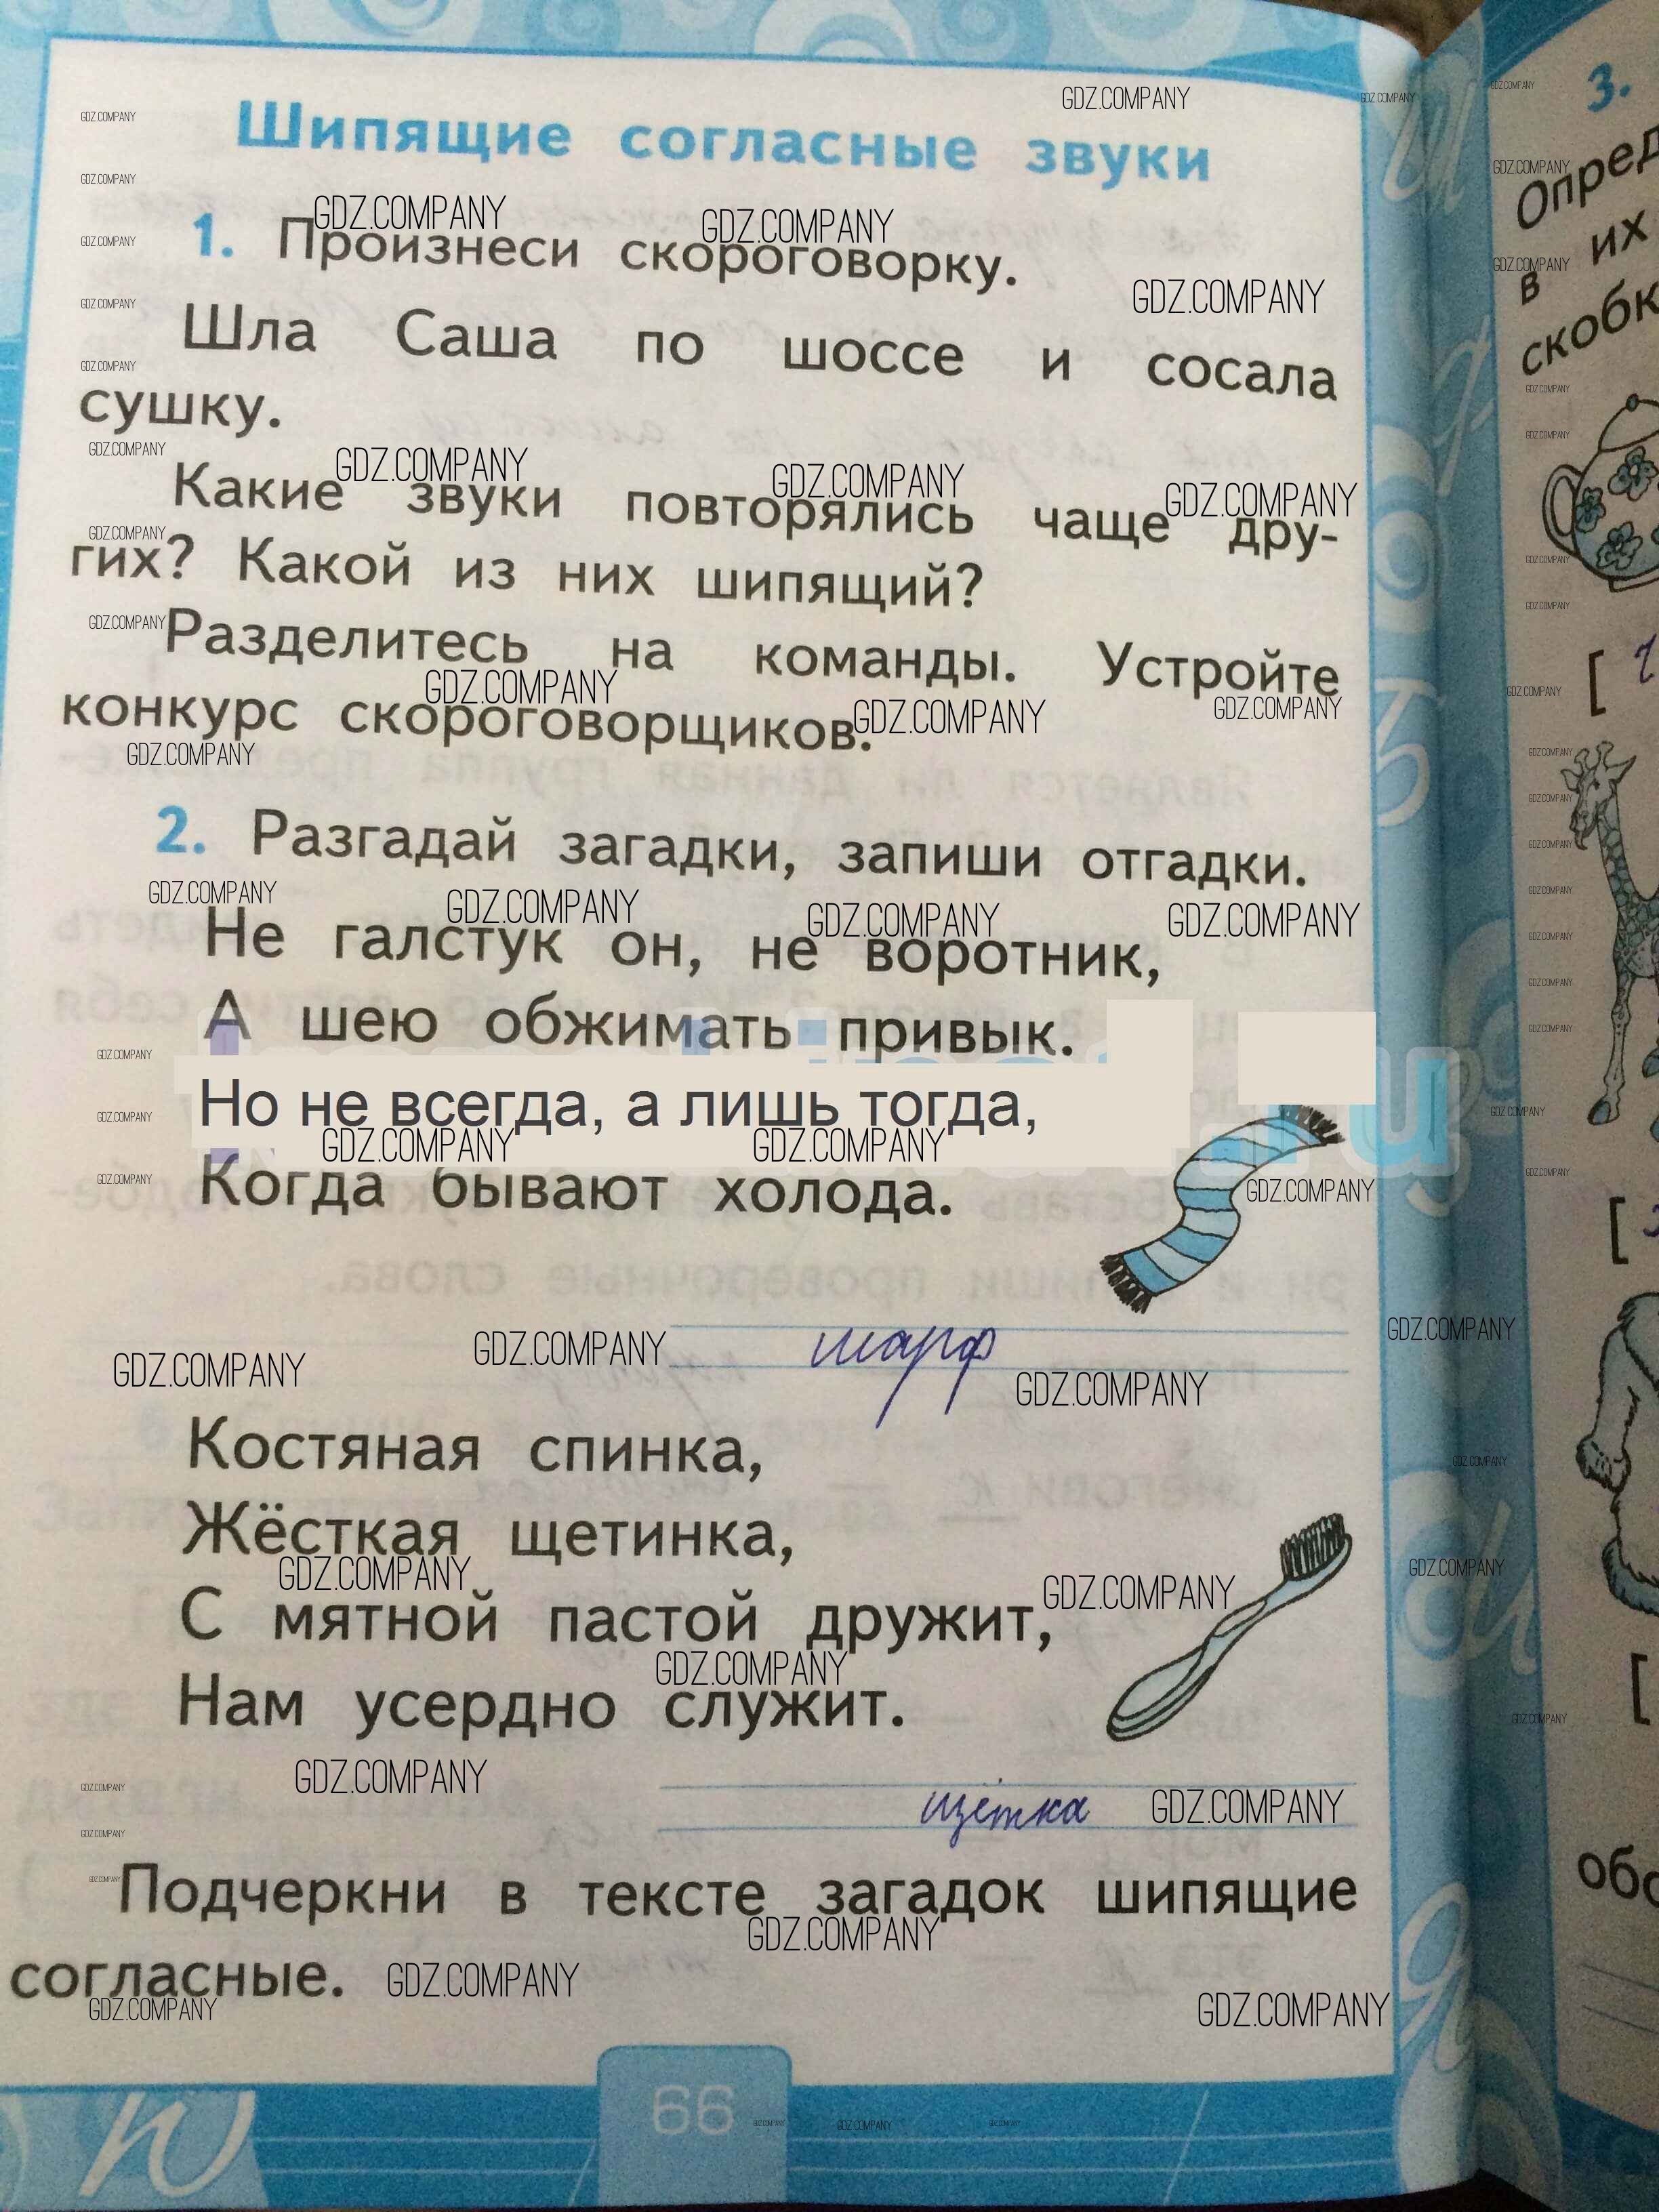 Шипящие согласные звуки
1. Произнеси скороговорку.
Шла Саша по шоссе и сосала
сушку.
Какие звуки повторялись чаще дру-
гих? Какой из них шипящий?
Разделитесь на команды. Устройте
конкурс скороговорщиков.
2. Разгадай загадки, запиши отгадки.
Не галстук он, не воротник,
А шею обжимать привык.
Но не всегда, а лишь тогда,
Когда бывают холода.
шарф
Костяная спинка,
Жёсткая щетинка,
С мятной пастой дружит,
Нам усердно служит.
щётка
Подчеркни в тексте загадок шипящие
согласные.
66
GDZ.COMPANY
3.
в их